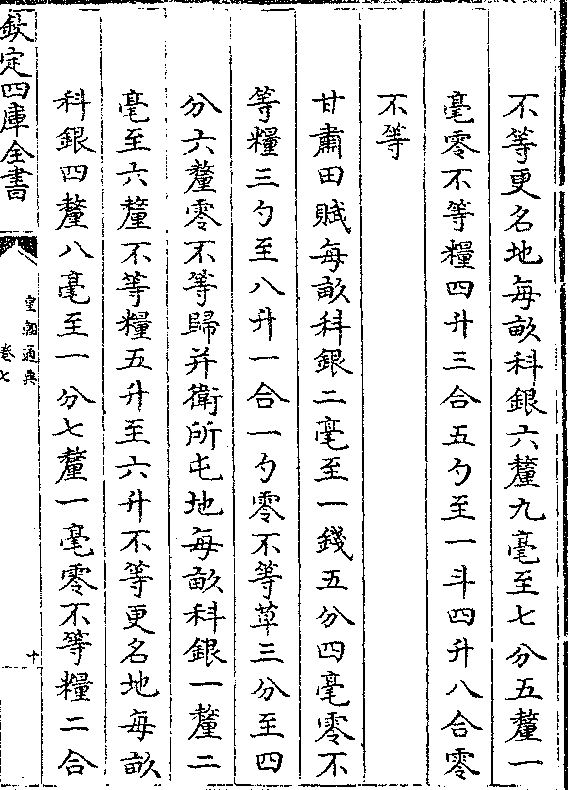 不等更名地每畝科銀六釐九毫至七分五釐一
毫零不等糧四升三合五勺至一斗四升八合零
不等
甘肅田賦每畝科銀二毫至一錢五分四毫零不
等糧三勺至八升一合一勺零不等草三分至四
分六釐零不等歸并衛所屯地每畝科銀一釐二
毫至六釐不等糧五升至六升不等更名地每畝
科銀四釐八毫至一分七釐一毫零不等糧二合
欽定四庫全書
皇朝通典
卷七
十